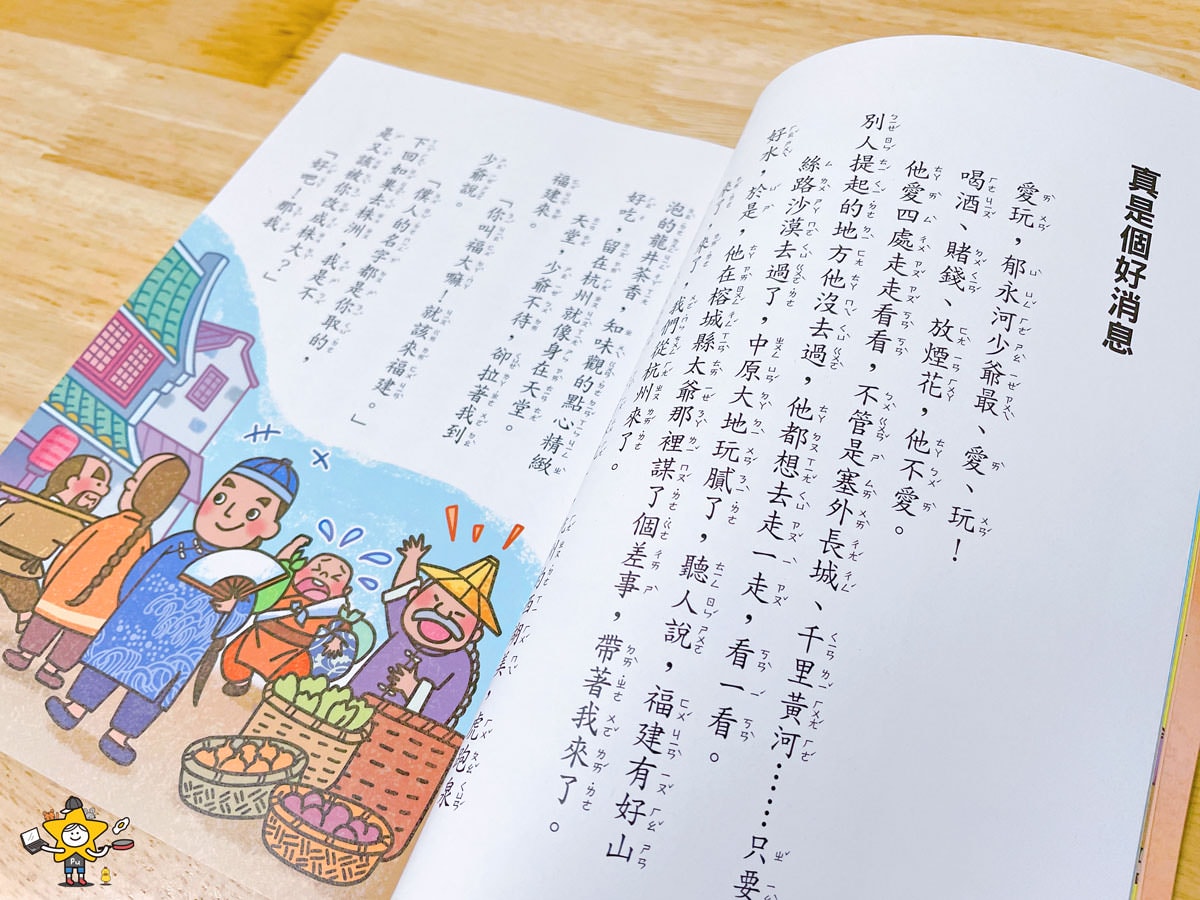 真是個好消息
愛玩，郁永河少爺最、愛、玩！
喝酒、賭錢、放煙花，他不愛。
他愛四處走走看看，不管是塞外長城、千里黃河……只要
別人提起的地方他沒去過，他都想去走一走，看一看。
絲路沙漠去過了，中原大地玩膩了，聽人說，福建有好山
好水，於是，他在榕城縣太爺那裡謀了個差事，帶著我來了。
來了，來了，我們從杭州來了。
的西湖美，虎跑泉
泡的龍井茶香，知味觀的點心精緻
好吃，留在杭州就像身在天堂。
天堂，少爺不待，卻拉著我到
福建來。
「你叫福大嘛！就該來福建。」
少爺說。
「僕人的名字都是你取的，
下回如果去株洲，我是不
是又該被你改成株大？」
「好吧！那我
Pu